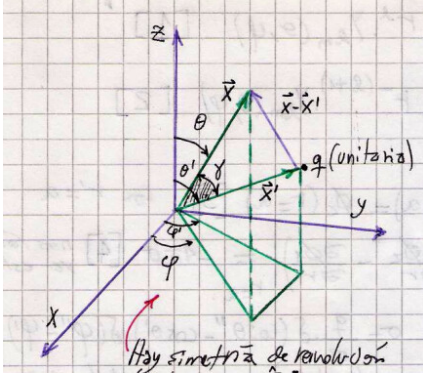 z
θ
x⃗
x⃗-x⃗'
θ'
γ
q (unitaria)
x⃗'
y
φ'
φ
x
Hay simetría de revolución